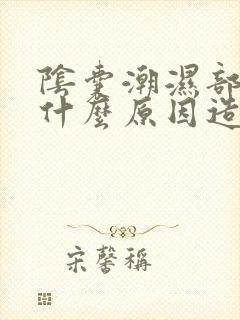 陰囊潮濕部
什麼原因造
宋馨稱